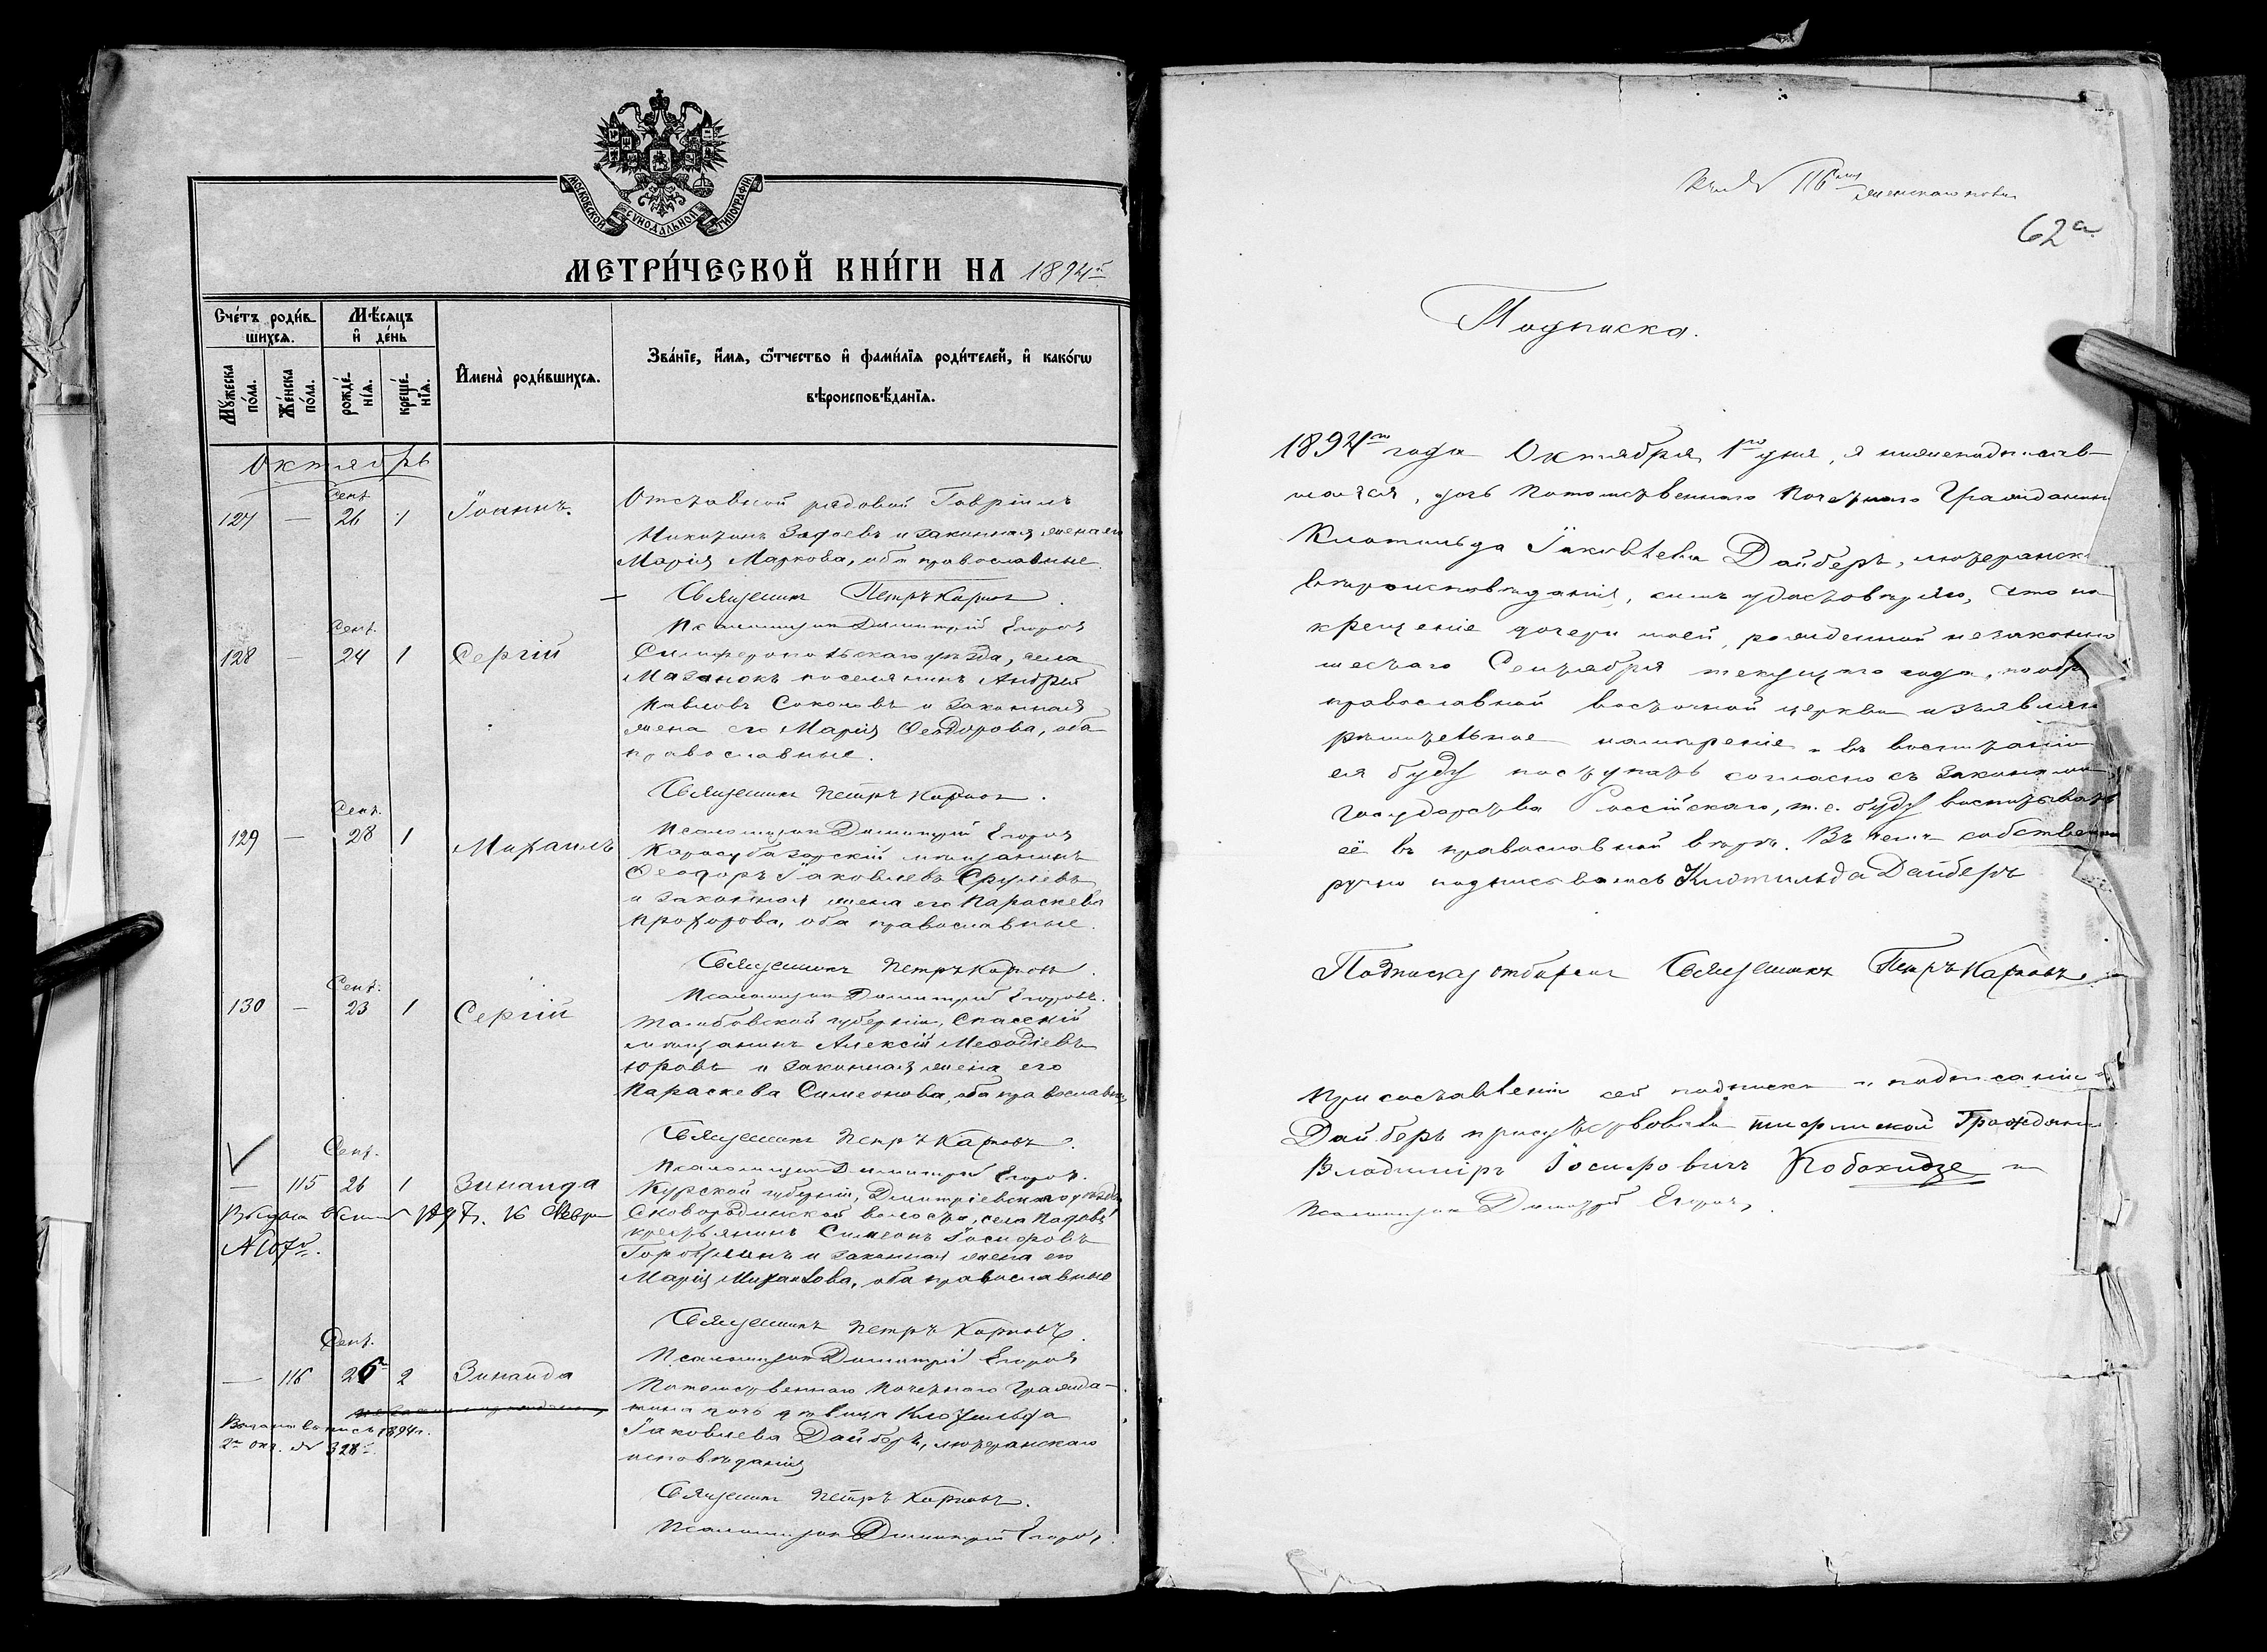 МОСКОВСКОЙ СѴНОДАЛЬНОЙ ТИПОГРАФІИ
МЕТРИ́ЧЕСКОЙ КНИ́ГИ НА 1894й
Сче́тъ роди́вшихсѧ.
Мѣ́сѧцъ и҆ де́нь
Му́жеска по́ла.
Же́нска по́ла.
рожде́нїѧ.
креще́нїѧ.
И҆мена̀ роди́вшихсѧ.
Зва́нїе, и҆́мѧ, ѻ҆́тчество и҆ фами́лїѧ роди́телей, и҆ како́гѡ
вѣроисповѣ́данїѧ.
Октябрь
Сент.
127 — 26 1 Іоаннъ.
Отставной рядовой Гавріилъ
и законная жена его
Марія Маркова, оба православные.
Священникъ Петръ Карповъ
Псаломщикъ Димитрій Егоровъ
Сент.
128 — 24 1 Сергій
Симферопольскаго уѣзда, села
Мазанокъ поселянинъ Андрей
Павловъ Соколовъ и законная
жена его Марія Ѳеодорова, оба
православные.
Священникъ Петръ Карповъ.
Псаломщикъ Димитрій Егоровъ
Сент.
129 — 28 1 Михаилъ
Карасубазарскій мѣщанинъ
Ѳеодоръ Іаковлевъ
и законная жена его Параскева
Прохорова, оба православные.
Священникъ Петръ Карповъ.
Псаломщикъ Димитрій Егоровъ.
Сент.
130 — 23 1 Сергій
Тамбовской губерніи, Спасскій
мѣщанинъ Алексій Меѳодіевъ
Юровъ и законная жена его
Параскева Симеонова, оба православные
Священникъ Петръ Карповъ.
Псаломщикъ Димитрій Егоровъ.
Сент.
— 115 26 1 Зинаида
Курской губерніи, Дмитріевскаго уѣзда
волости, села
крестьянинъ Симеонъ Іосифовъ
и законная жена его
Марія Михайлова, оба православные
16 Февр
№ 107й.
Священникъ Петръ Карповъ.
Псаломщикъ Димитрій Егоровъ
Сент.
— 116 26 2 Зинаида
Потомственнаго Почетнаго Гражда-
нина дочь дѣвица Клотильда
Іаковлева Дайберъ, лютеранскаго
исповѣданія
Выдана выпись 1894 г.
2го окт. № 328й.
Священникъ Петръ Карповъ.
Псаломщикъ Димитрій Егоровъ.
Къ № 116 женскаго пола
62а
Подписка.
1894го года Октября 1го дня, я нижеподписав-
шаяся, дочь Потомственнаго Почетнаго Гражданина
Клотильда Іаковлева Дайберъ, лютеранск
вѣроисповѣданія, симъ удостовѣряю, что на
крещеніе дочери моей, рожденной незаконно
Сентября текущаго года, по обр
православной восточной церкви изъявляю
рѣшительное намѣреніе и въ воспитаніи
ея буду поступать согласно съ законами
Государства Россійскаго, т. е. буду воспитывать
её въ православной вѣрѣ. Въ чемъ собственно
ручно подписываюсь Клотильда Дайберъ
Подписку отбиралъ Священникъ Петръ Карповъ
При составленіи сей подписки и подписаніи
Дайберъ присутствовали тифлисской Гражданинъ
Владиміръ Іосифовичъ Кобахидзе и
Псаломщикъ Димитрій Егоровъ.